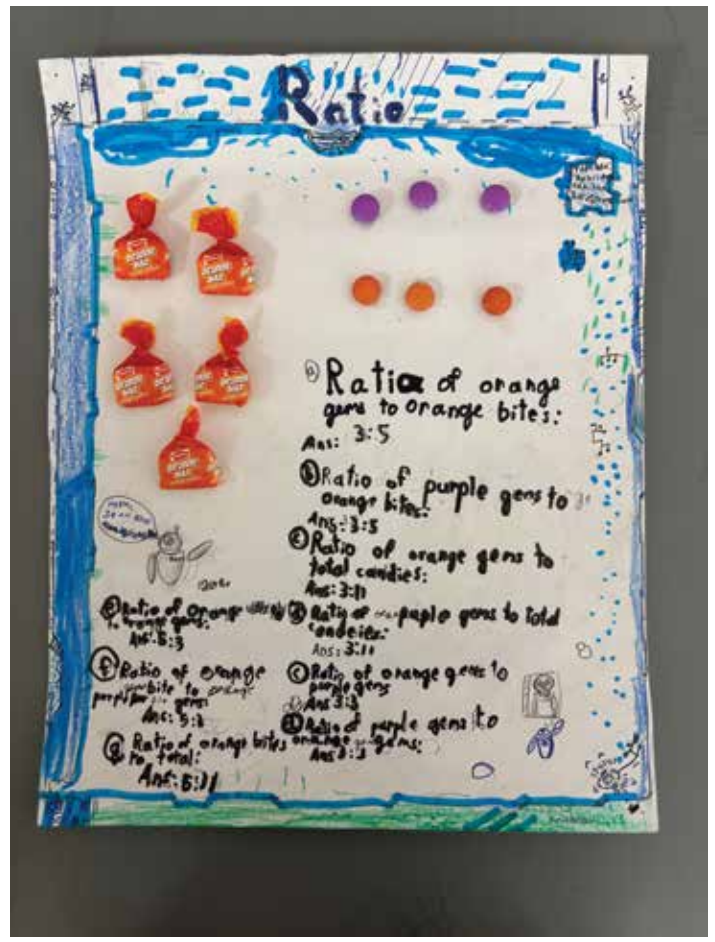 Ratio
ⓐ Ratio of orange
gems to orange bites:
Ans: 3:5
ⓑ Ratio of purple gems to
orange bites:
Ans: 3:5
ⓒ Ratio of orange gems to
total candies:
Ans: 3:11
ⓓ Ratio of puple gems to total
candeies:
Ans: 3:11
ⓔ Ratio of orange
to orange gems:
Ans: 5:3
ⓕ Ratio of orange
bite to
purple gems
Ans: 5:3
ⓖ Ratio of orange bites
to total:
Ans: 5:11
ⓒ Ratio of orange gems to
purple gems
Ans 3:3
ⓓ Ratio of purple gems to
orange gems:
Ans 3:3